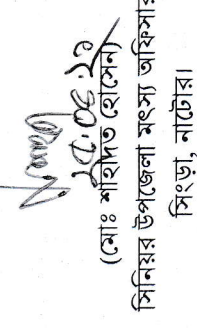 ৩০.০৮.২১
(মোঃ শাহাদত হোসেন)
সিনিয়র উপজেলা মৎস্য অফিসার
সিংড়া, নাটোর।